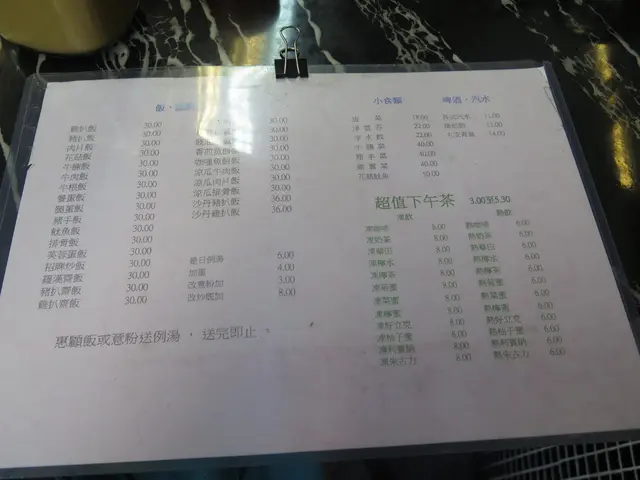 飯、
雞扒飯 30.00
豬扒飯 30.00
肉片飯 30.00
花菇飯 30.00
牛腩飯 30.00
牛肉飯 30.00
牛根飯 30.00
蟹蛋飯 30.00
腸蛋飯 30.00
豬手飯 30.00
魷魚飯 30.00
排骨飯 30.00
芙蓉蛋飯 30.00
招牌炒飯 30.00
羅漢齋飯 30.00
豬扒齋飯 30.00
雞扒齋飯 30.00
30.00
30.00
30.00
30.00
咖喱魚餅飯 30.00
涼瓜牛肉飯 30.00
涼瓜肉片飯 30.00
涼瓜排骨飯 30.00
沙丹豬扒飯 36.00
沙丹雞扒飯 36.00
是日例湯 6.00
加蛋 4.00
改意粉加 3.00
改炒底加 8.00
惠顧飯或意粉送例湯，送完即止。
小食類
菜 18.00
淨雲吞 22.00
淨水餃 22.00
牛腩菜 40.00
豬手菜 40.00
40.00
花豬魷魚 10.00
啤酒、汽水
各式汽水 11.00
維他奶 11.00
14.00
超值下午茶 3.00至5.30
凍飲
凍咖啡 8.00
凍奶茶 8.00
凍華田 8.00
凍檸水 8.00
凍檸茶 8.00
凍菊蜜 8.00
凍菜蜜 8.00
凍檸蜜 8.00
凍好立克 8.00
凍柚子蜜 8.00
凍利賓納 8.00
凍朱古力 8.00
熱飲
熱咖啡 6.00
熱奶茶 6.00
熱華田 6.00
熱檸水 6.00
熱檸茶 6.00
熱菊蜜 6.00
熱菜蜜 6.00
熱檸蜜 6.00
熱好立克 6.00
熱柚子蜜 6.00
熱利賓納 6.00
熱朱古力 6.00